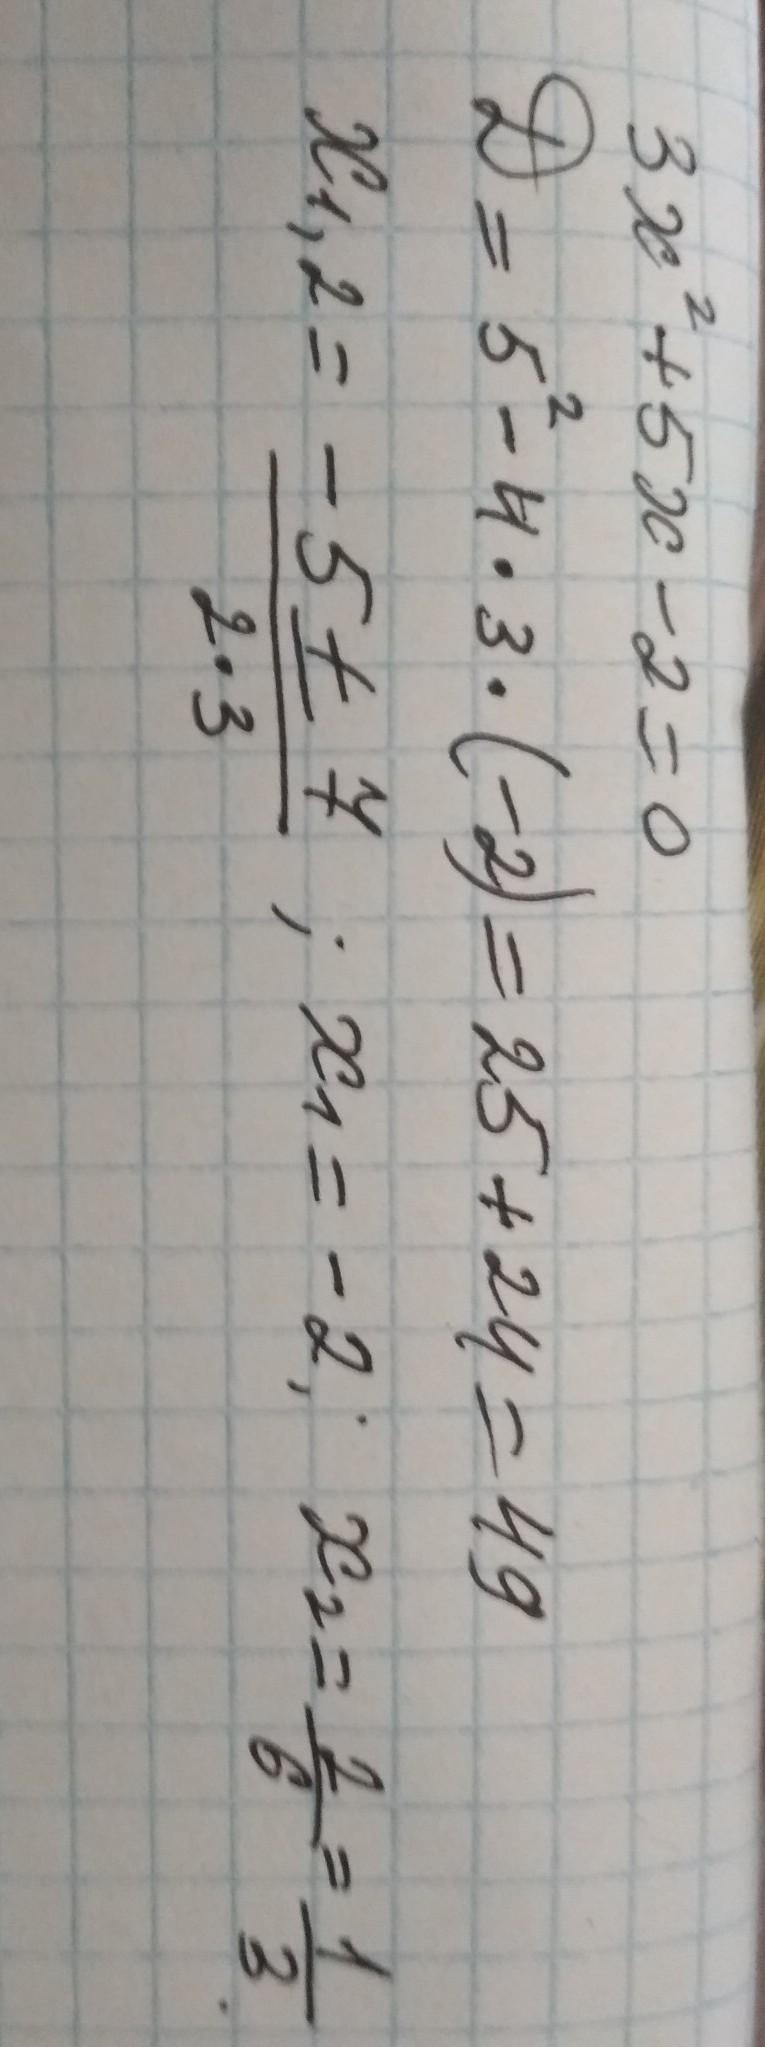 3x² + 5x - 2 = 0
D = 5² - 4 · 3 · (-2) = 25 + 24 = 49
x₁,₂ = (-5 ± 7)/(2·3) ; x₁ = -2; x₂ = 2/6 = 1/3.